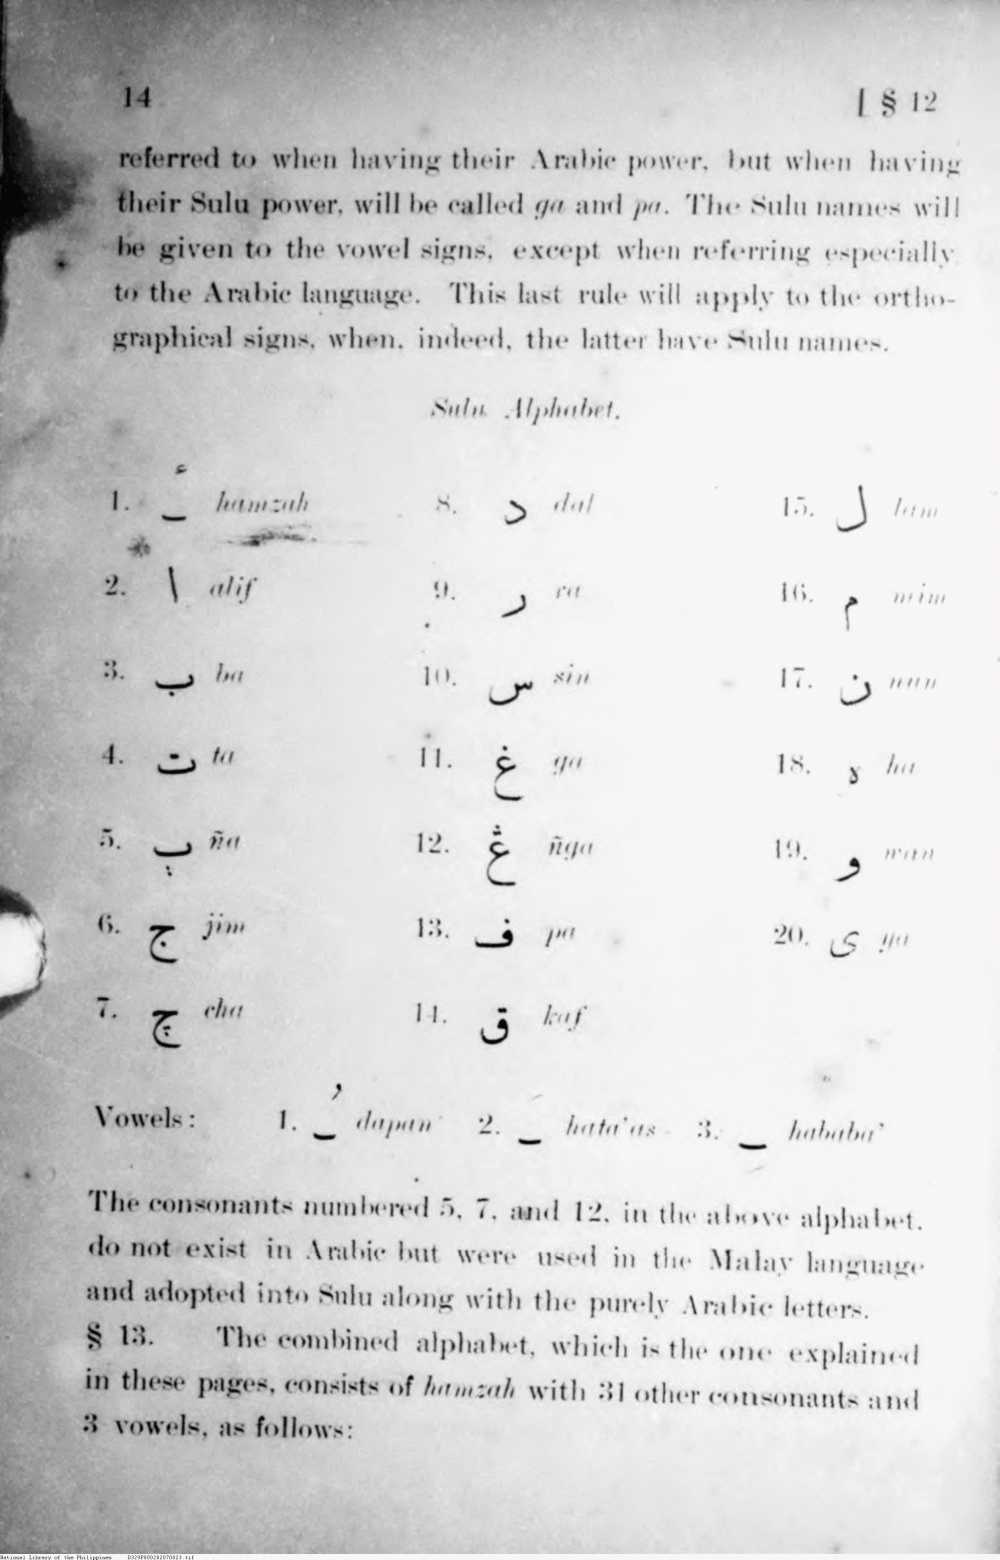 14 [ § 12
referred to when having their Arabic power, but when having
their Sulu power, will be called ga and pa. The Sulu names will
be given to the vowel signs, except when referring especially
to the Arabic language. This last rule will apply to the ortho-
graphical signs, when, indeed, the latter have Sulu names.
Sulu Alphabet.
1. ــٔ hamzah 8. د dal 15. ل lam
2. ا alif 9. ر ra 16. م mim
3. ب ba 10. س sin 17. ن nun
4. ت ta 11. غ ga 18. ه ha
5. پ ña 12. ڠ ñga 19. و wau
6. ج jim 13. ف pa 20. ى ya
7. چ cha 14. ق kaf
Vowels: 1. ـُ dapan 2. ـَ hata'as 3. ـِ hababa'
The consonants numbered 5, 7, and 12, in the above alphabet,
do not exist in Arabic but were used in the Malay language
and adopted into Sulu along with the purely Arabic letters.
§ 13. The combined alphabet, which is the one explained
in these pages, consists of hamzah with 31 other consonants and
3 vowels, as follows:
National Library of the Philippines